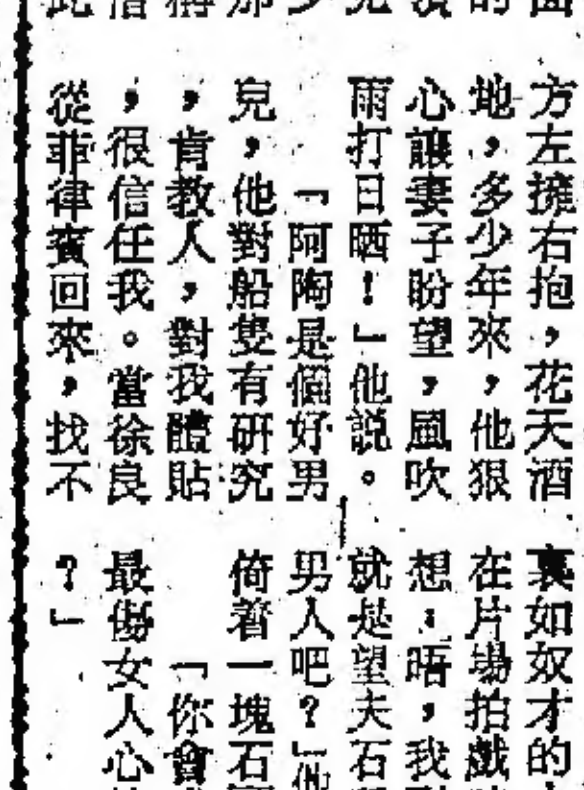 方左擁右抱，花天酒
地，多少年來，他狠
心讓妻子盼望，風吹
雨打日晒！」他説。
「阿陶是個好男
兒，他對船隻有研究
，肯教人，對我體貼
，很信任我。當徐良
從菲律賓回來，找不
裏如奴才的
在片場拍戲
想：唔，我
就是望夫石
男人吧？」他
倚着一塊石
「你會
最傷女人心
？」